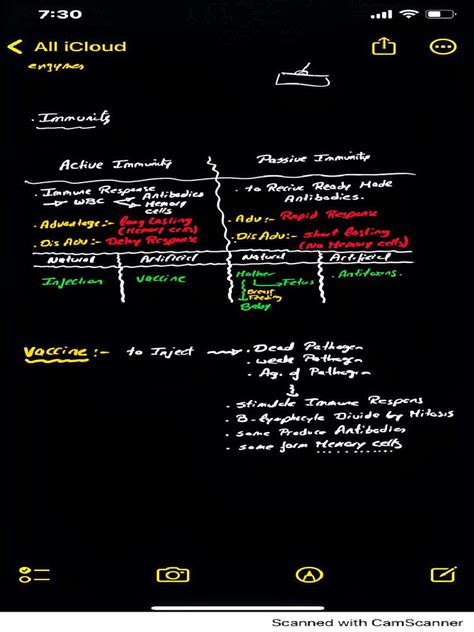 7:30
All iCloud
enzymes
. Immunity
Active Immunity
Passive Immunity
. Immune Response
→ WBC Antibodies
Memory cells
. Advantage:- long lasting
(Memory cells)
. Dis Adv:- Delay Response
. to Recive Ready Made
Antibodies.
. Adv:- Rapid Response
. Dis Adv:- short lasting
(No Memory cells)
Natural
Artificial
Natural
Artificial
Injection
Vaccine
Mother
→ Fetus
Breast
Feeding
Baby
Antitoxins.
Vaccine:- to Inject → . Dead Pathogen
. weak Pathogen
. Ag. of Pathogen
. stimulate Immune Respons
. B-lymphocyte Divide by Mitosis
. some Produce Antibodies
. some form Memory cells
Scanned with CamScanner